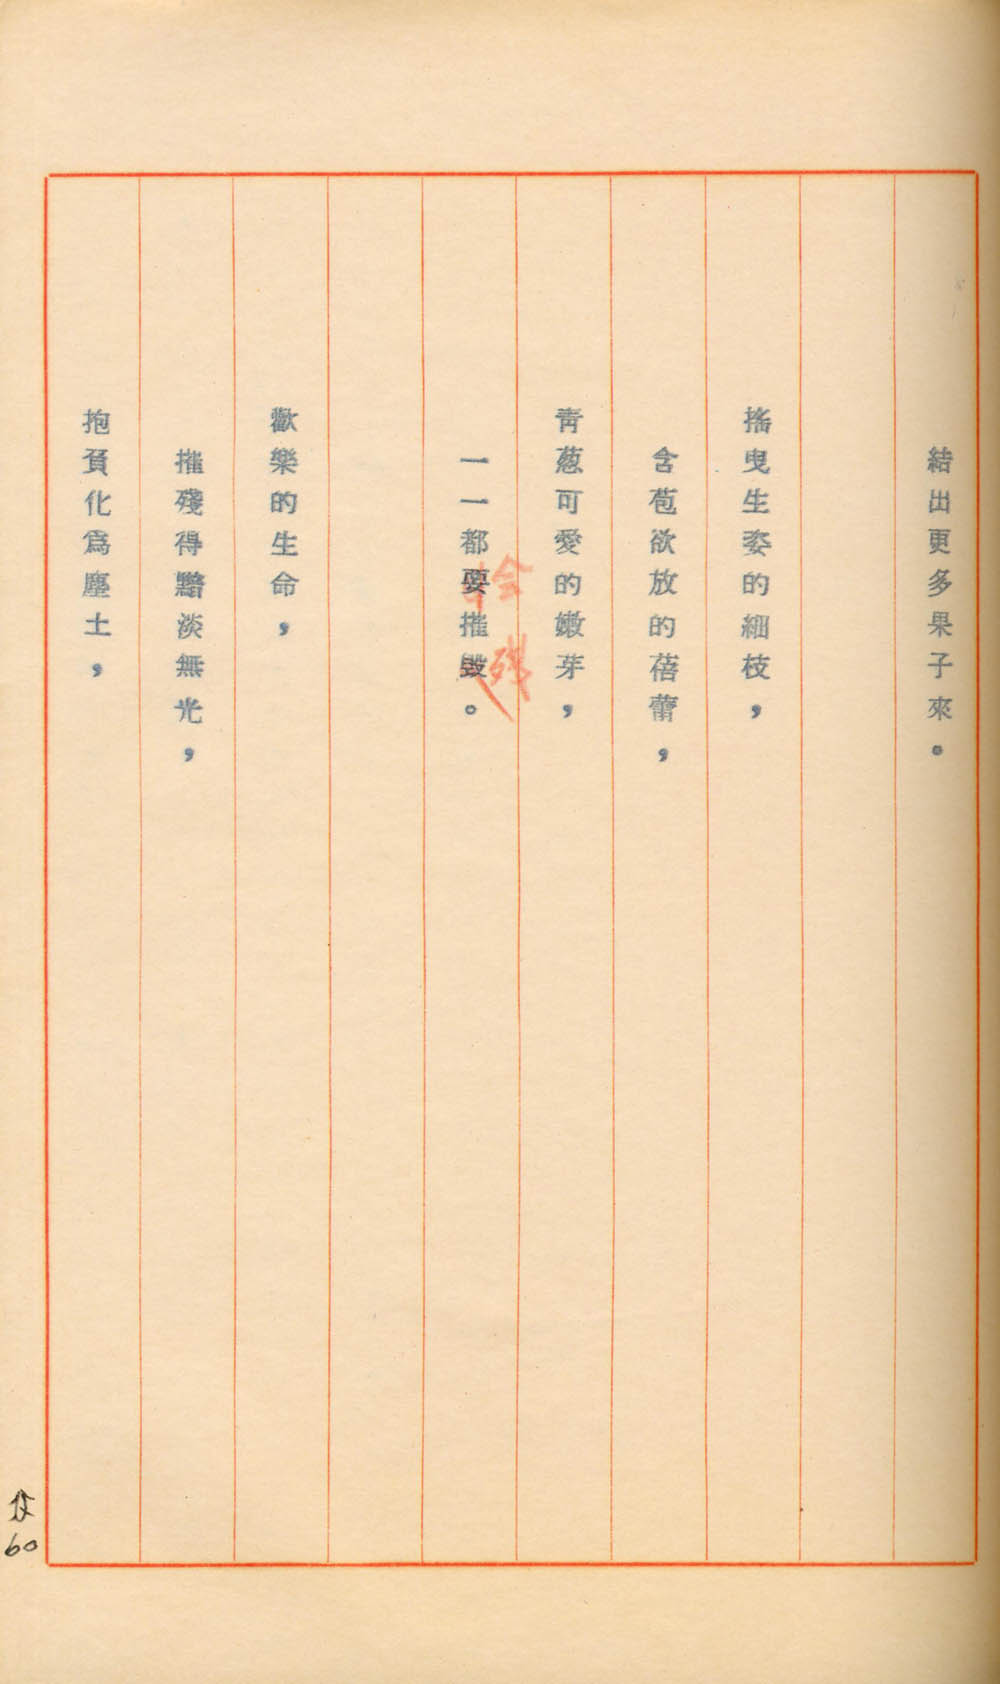 結出更多果子來。
搖曳生姿的細枝，
含苞欲放的蓓蕾，
青葱可愛的嫩芽，
一一都要摧毀。
會殘
歡樂的生命，
摧殘得黯淡無光，
抱負化為塵土，
60